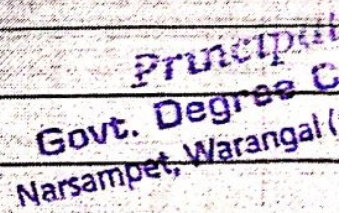 Principal
Govt. Degree C
Narsampet, Warangal (